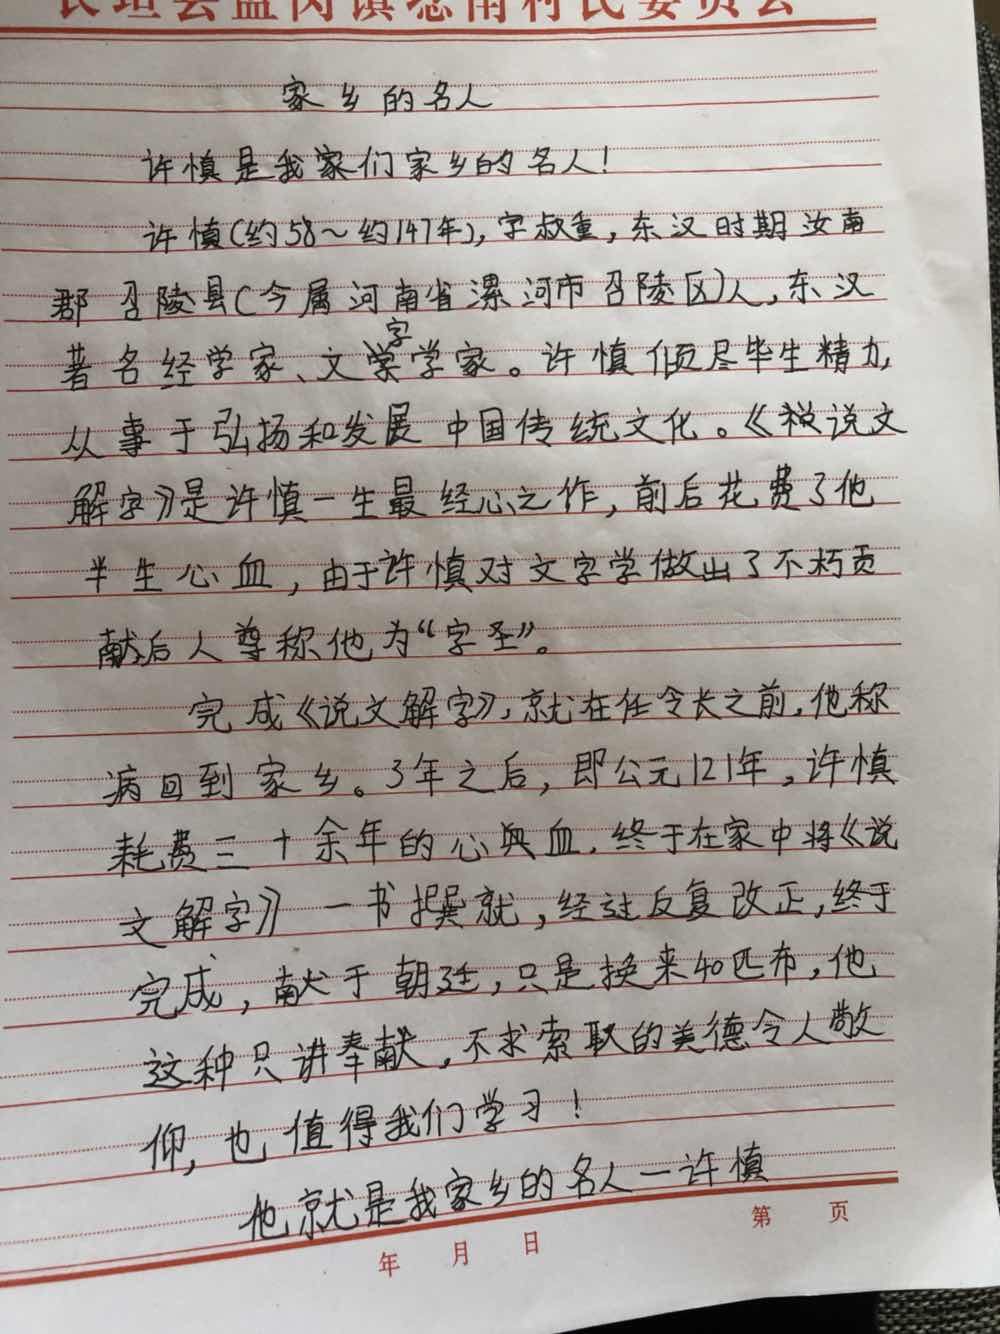 家乡的名人
许慎是我家们家乡的名人！
许慎(约58～约147年),字叔重，东汉时期汝南
郡召陵县(今属河南省漯河市召陵区)人，东汉
著名经学家、文字学家。许慎倾尽毕生精力,
从事于弘扬和发展中国传统文化。《说文
解字》是许慎一生最经心之作，前后花费了他
半生心血，由于许慎对文字学做出了不朽贡
献后人尊称他为“字圣”。
完成《说文解字》,就在任令长之前,他称
病回到家乡。3年之后，即公元121年，许慎
耗费三十余年的心血,终于在家中将《说
文解字》一书撰就，经过反复改正,终于
完成，献于朝廷，只是换来40匹布，他
这种只讲奉献，不求索取的美德令人敬
仰，也值得我们学习！
他就是我家乡的名人一许慎
年 月 日 第 页